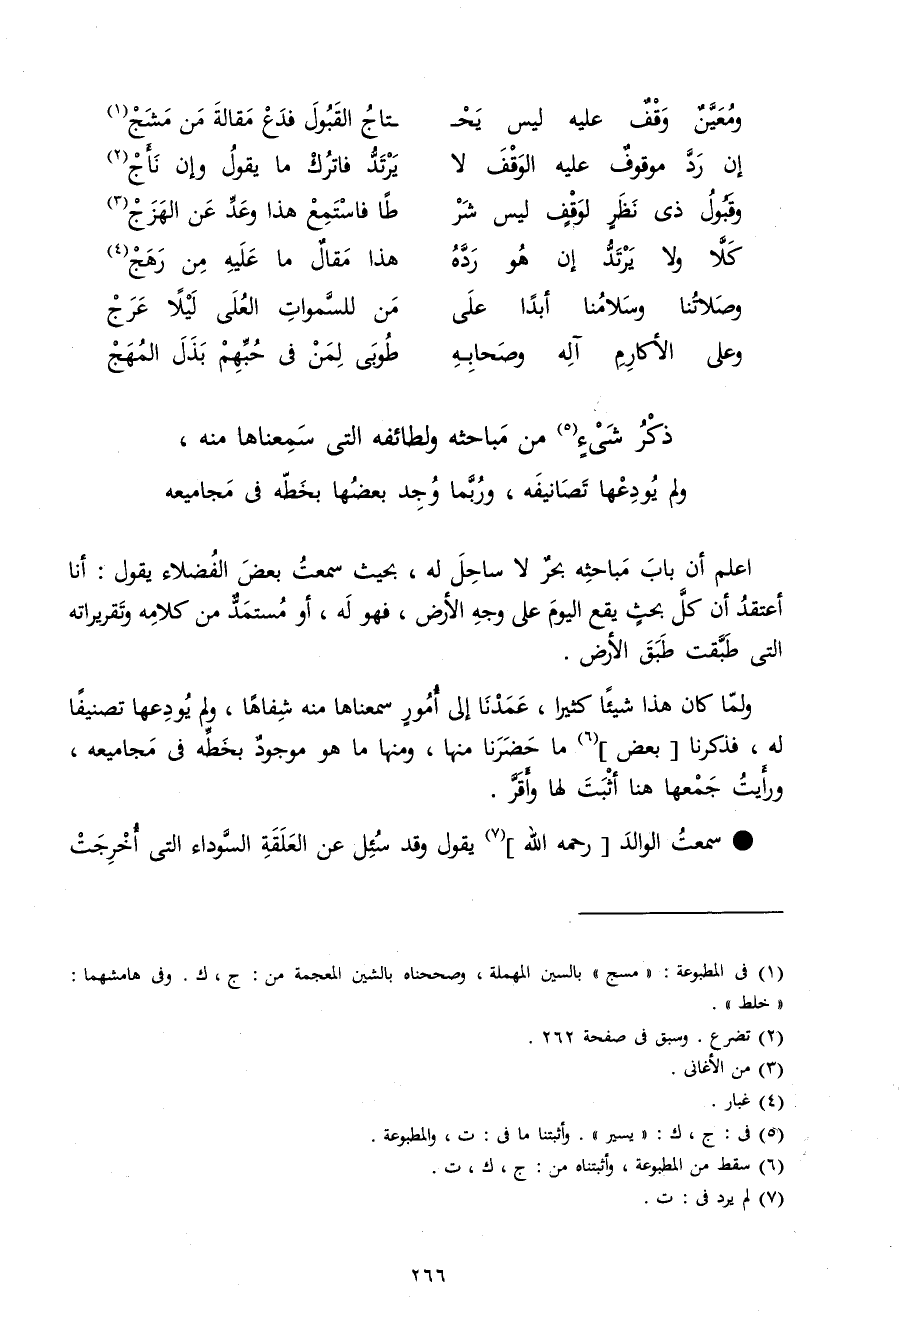 ومُعَيَّنٌ وَقْفٌ عليه ليس يَحْـ ـتاجُ القَبُولَ فدَعْ مَقالةَ مَن مَشَجْ(١)
إن رَدَّ موقوفٌ عليه الوَقْفَ لا يَرْتَدُّ فاترُكْ ما يقولُ وإن نَأَجْ(٢)
وقَبُولُ ذى نَظَرٍ لوَقْفٍ ليس شَرْ طًا فاسْتَمِعْ هذا وعَدِّ عَن الهَزَجْ(٣)
كَلَّا ولا يَرْتَدُّ إن هُو رَدَّهُ هذا مَقالٌ ما عَلَيهِ مِن رَهَجْ(٤)
وصَلاتُنا وسَلامُنا أبدًا علَى مَن للسَّمواتِ العُلَى لَيْلًا عَرَجْ
وعلى الأكارِمِ آلِه وصَحابِـهِ طُوبَى لِمَنْ فى حُبِّهِمْ بَذَلَ المُهَجْ
ذكْرُ شَىْءٍ(٥) من مَباحثه ولطائفه التى سَمِعناها منه ،
ولم يُودِعْها تَصَانيفَه ، ورُبَّما وُجِد بعضُها بخَطّه فى مَجاميعه
اعلم أن بابَ مَباحثِه بحرٌ لا ساحِلَ له ، بحيث سمعتُ بعضَ الفُضلاء يقول : أنا
أعتقدُ أن كلَّ بحثٍ يقع اليومَ على وجهِ الأرض ، فهو لَه ، أو مُستمَدٌّ من كلامِه وتَقريراته
التى طَبَّقت طَبَقَ الأرض .
ولمّا كان هذا شيئًا كثيرا ، عَمَدْنَا إلى أُمُورٍ سمعناها منه شِفاهًا ، ولم يُودِعها تصنيفًا
له ، فذكرنا [ بعض ](٦) ما حَضَرَنا منها ، ومنها ما هو موجودٌ بخَطِّه فى مَجاميعه ،
ورأيتُ جَمْعها هنا أثْبَتَ لها وأَقَرَّ .
● سمعتُ الوالدَ [ رحمه الله ](٧) يقول وقد سُئِل عن العَلَقَةِ السَّوداء التى أُخْرِجَتْ
(١) فى المطبوعة : « مسج » بالسين المهملة ، وصححناه بالشين المعجمة من : ج ، ك . وفى هامشهما :
« خلط » .
(٢) تضرع . وسبق فى صفحة ٢٦٢ .
(٣) من الأغانى .
(٤) غبار .
(٥) فى : ج ، ك : « يسير » . وأثبتنا ما فى : ت ، والمطبوعة .
(٦) سقط من المطبوعة ، وأثبتناه من : ج ، ك ، ت .
(٧) لم يرد فى : ت .
٢٦٦